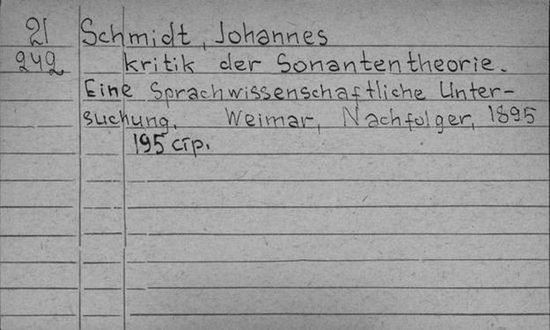 21 Schmidt, Johannes
242 kritik der Sonantentheorie.
Eine Sprachwissenschaftliche Unter-
suchung. Weimar, Nachfolger, 1895
195 стр.